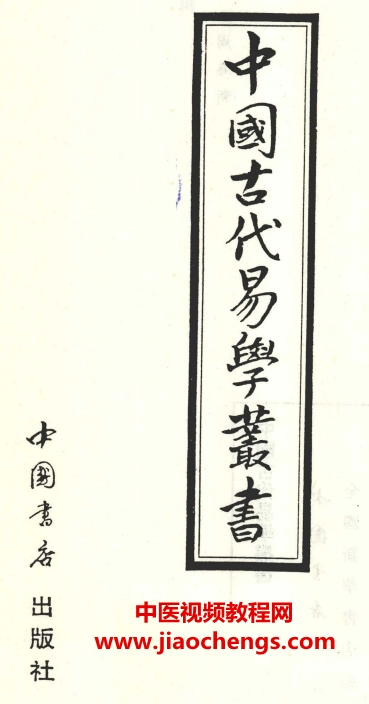 中國古代易學叢書
中國書店 出版社
中医视频教程网
www.jiaochengs.com